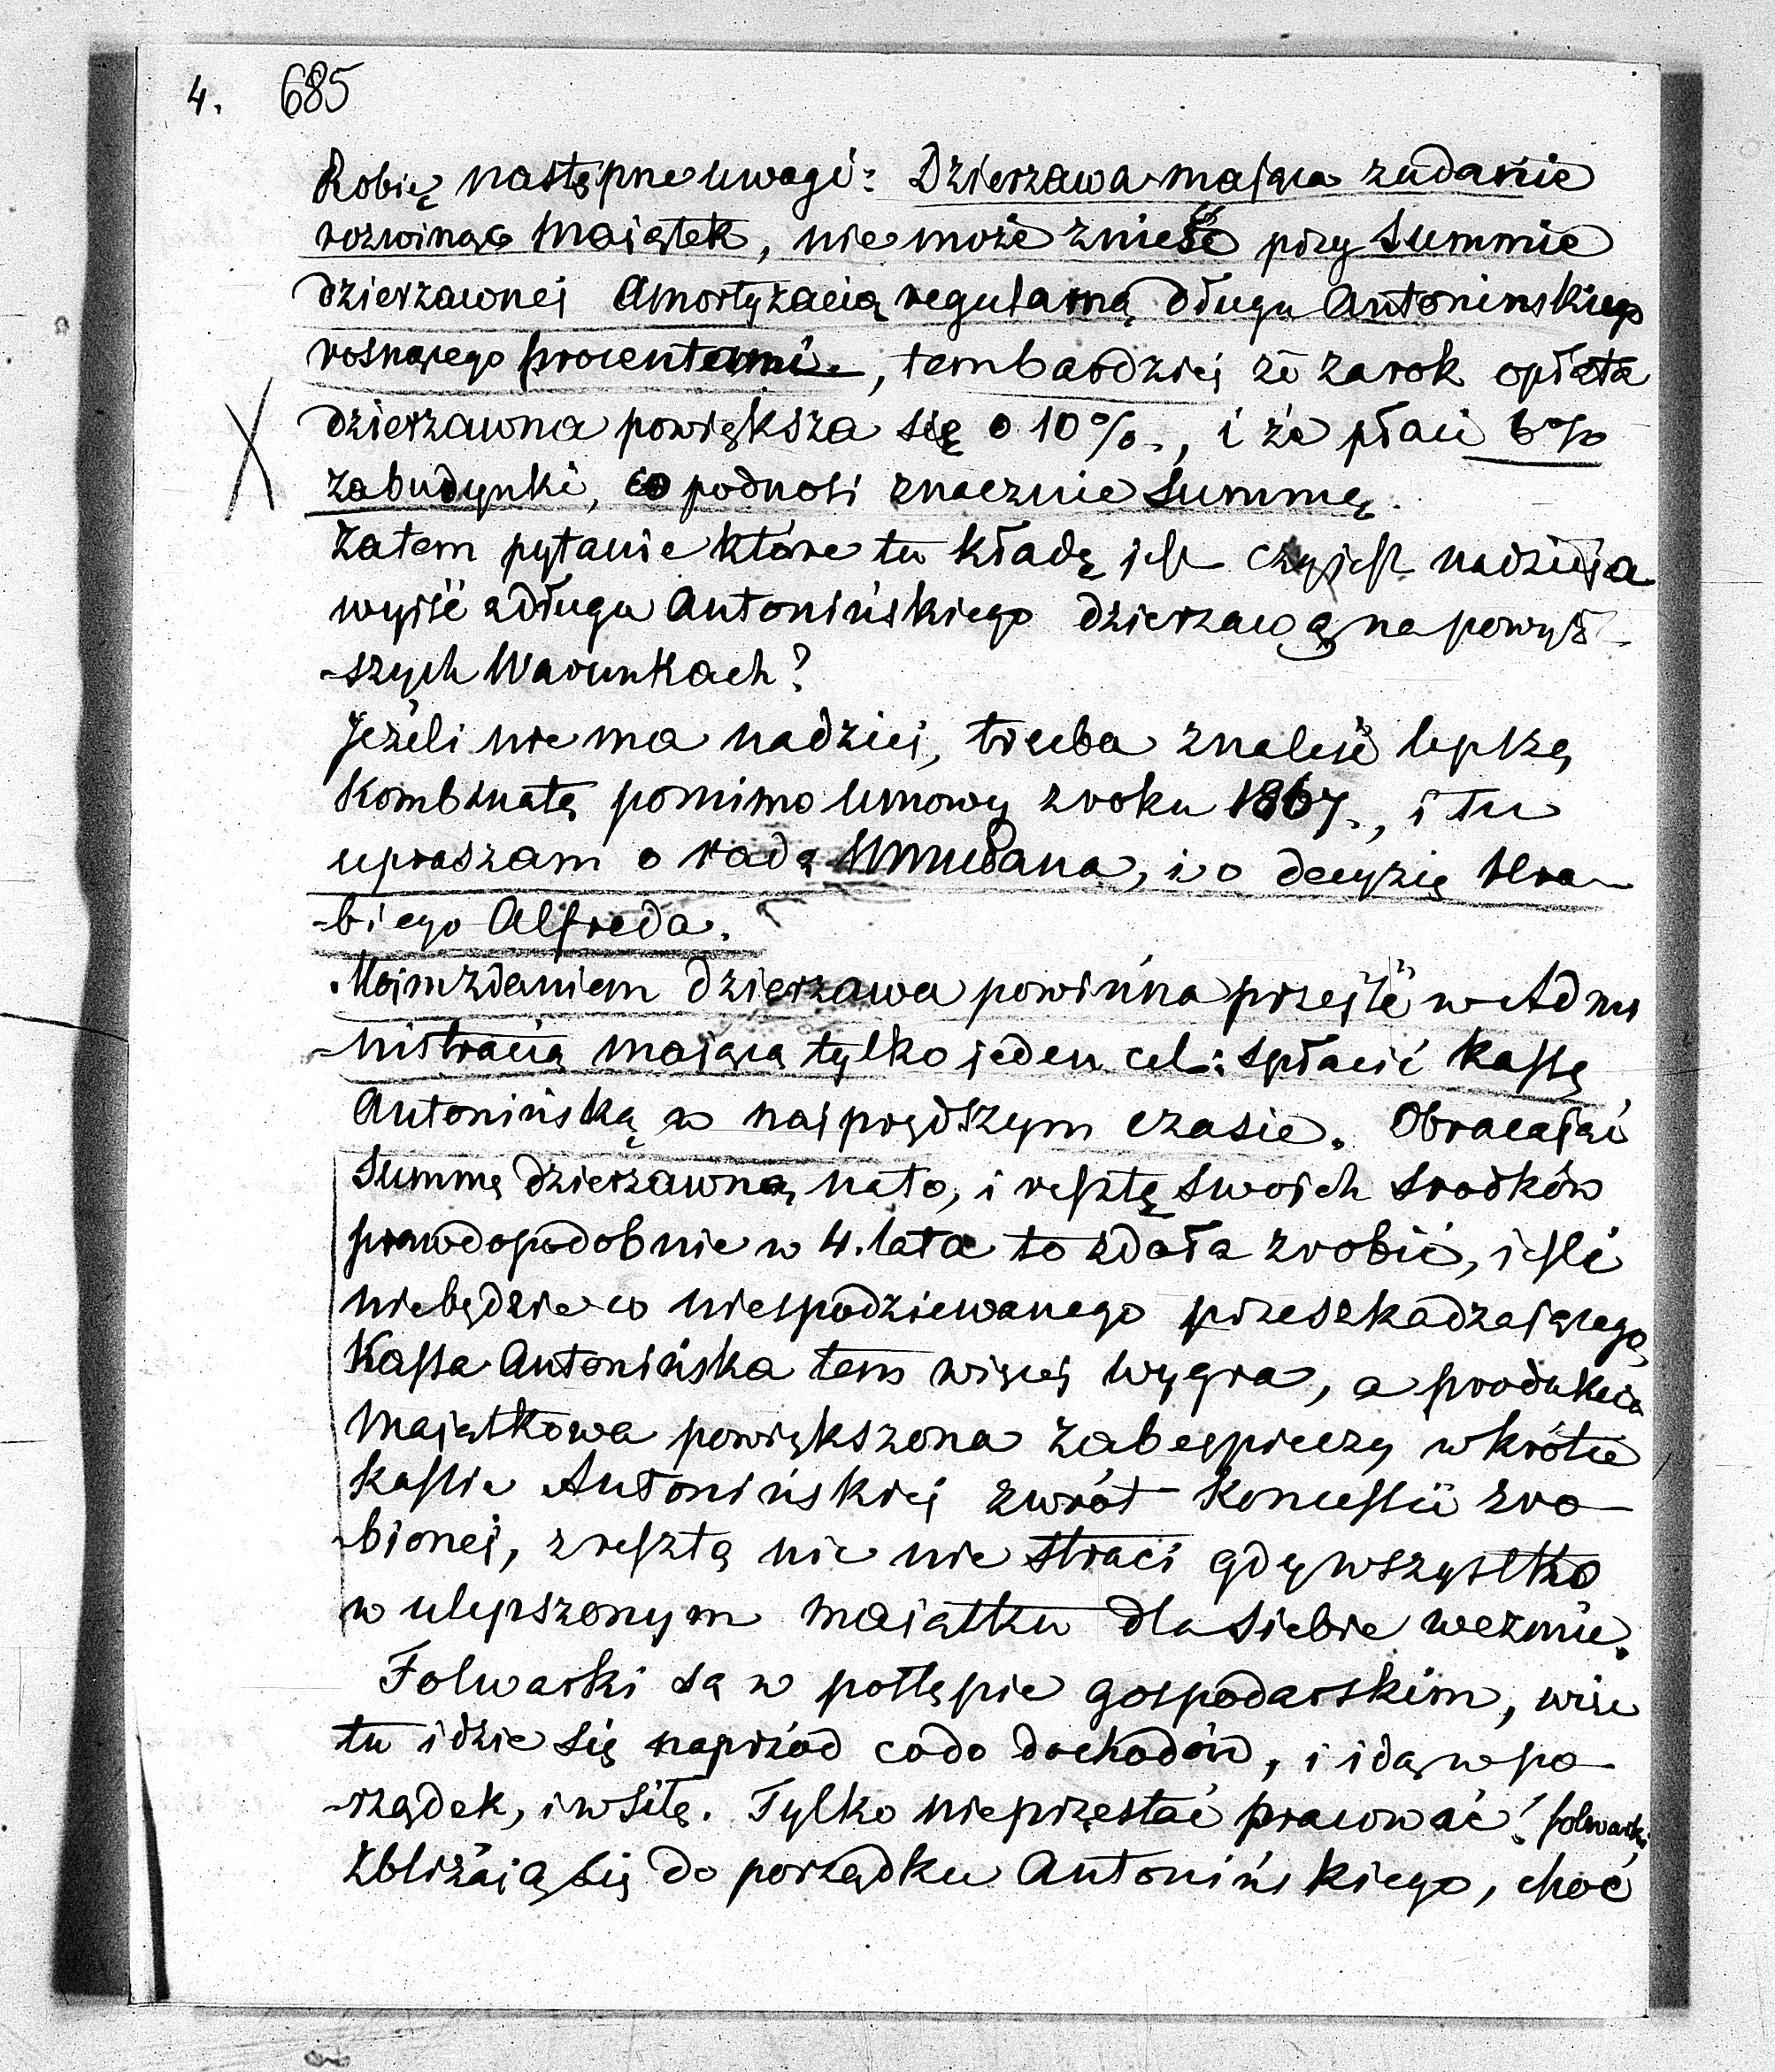 4. 685
Robię następne uwagi: Dzierzawa mająca zadanie
rozwinąć maiątek, nie może znieść przy Summie
dzierzawnej Amortyzacią regularną długu Antoninskiego
rosnącego procentami, tembardziej że zarok opłata
dzierzawna powiększa się o 10%., i że płaci 6%
zabudynki, co podnosi znacznie Summę.
Zatem pytanie które tu kładę jest czy jest nadzieja
wyjść z długu Antonińskiego dzierzawą na powyż-
-szych Warunkach?
Jeżeli niema nadziei, trzeba znaleść lepszą
Kombinatę pomimo Umowy z roku 1867., i tu
upraszam o radę  i o decyzię Hra-
-biego Alfreda.
Moim zdaniem dzierzawa powinna przejść w Admi
-nistracią maiącą tylko jeden cel: spłacić Kassę
Antonińską w najprędszym czasie. Obracając
Summę dzierzawną nato, i resztę swoich srodków
prawdopodobnie w 4. lata to zdoła zrobić, jeśli
niebędzie co niespodziewanego przeszkadzaiącego,
Kassa Antonińska tem więcej wygra, a produkcia
Maiątkowa powiększona zabespieczy wkrótce
Kassie Antonińskiej zwrót Koncessii zro-
-bionej, zresztą nic nie straci gdy wszystko
w ulepszonym maiątku dla siebie wezmie.
Folwarki są w postępie gospodarskim, więc
tu idzie się naprzód codo dochodów, i idą w po-
-rządek, i w siłę. Tylko nieprzestać pracować! folwarki
Zbliżaią się do porządku Antonińskiego, choć